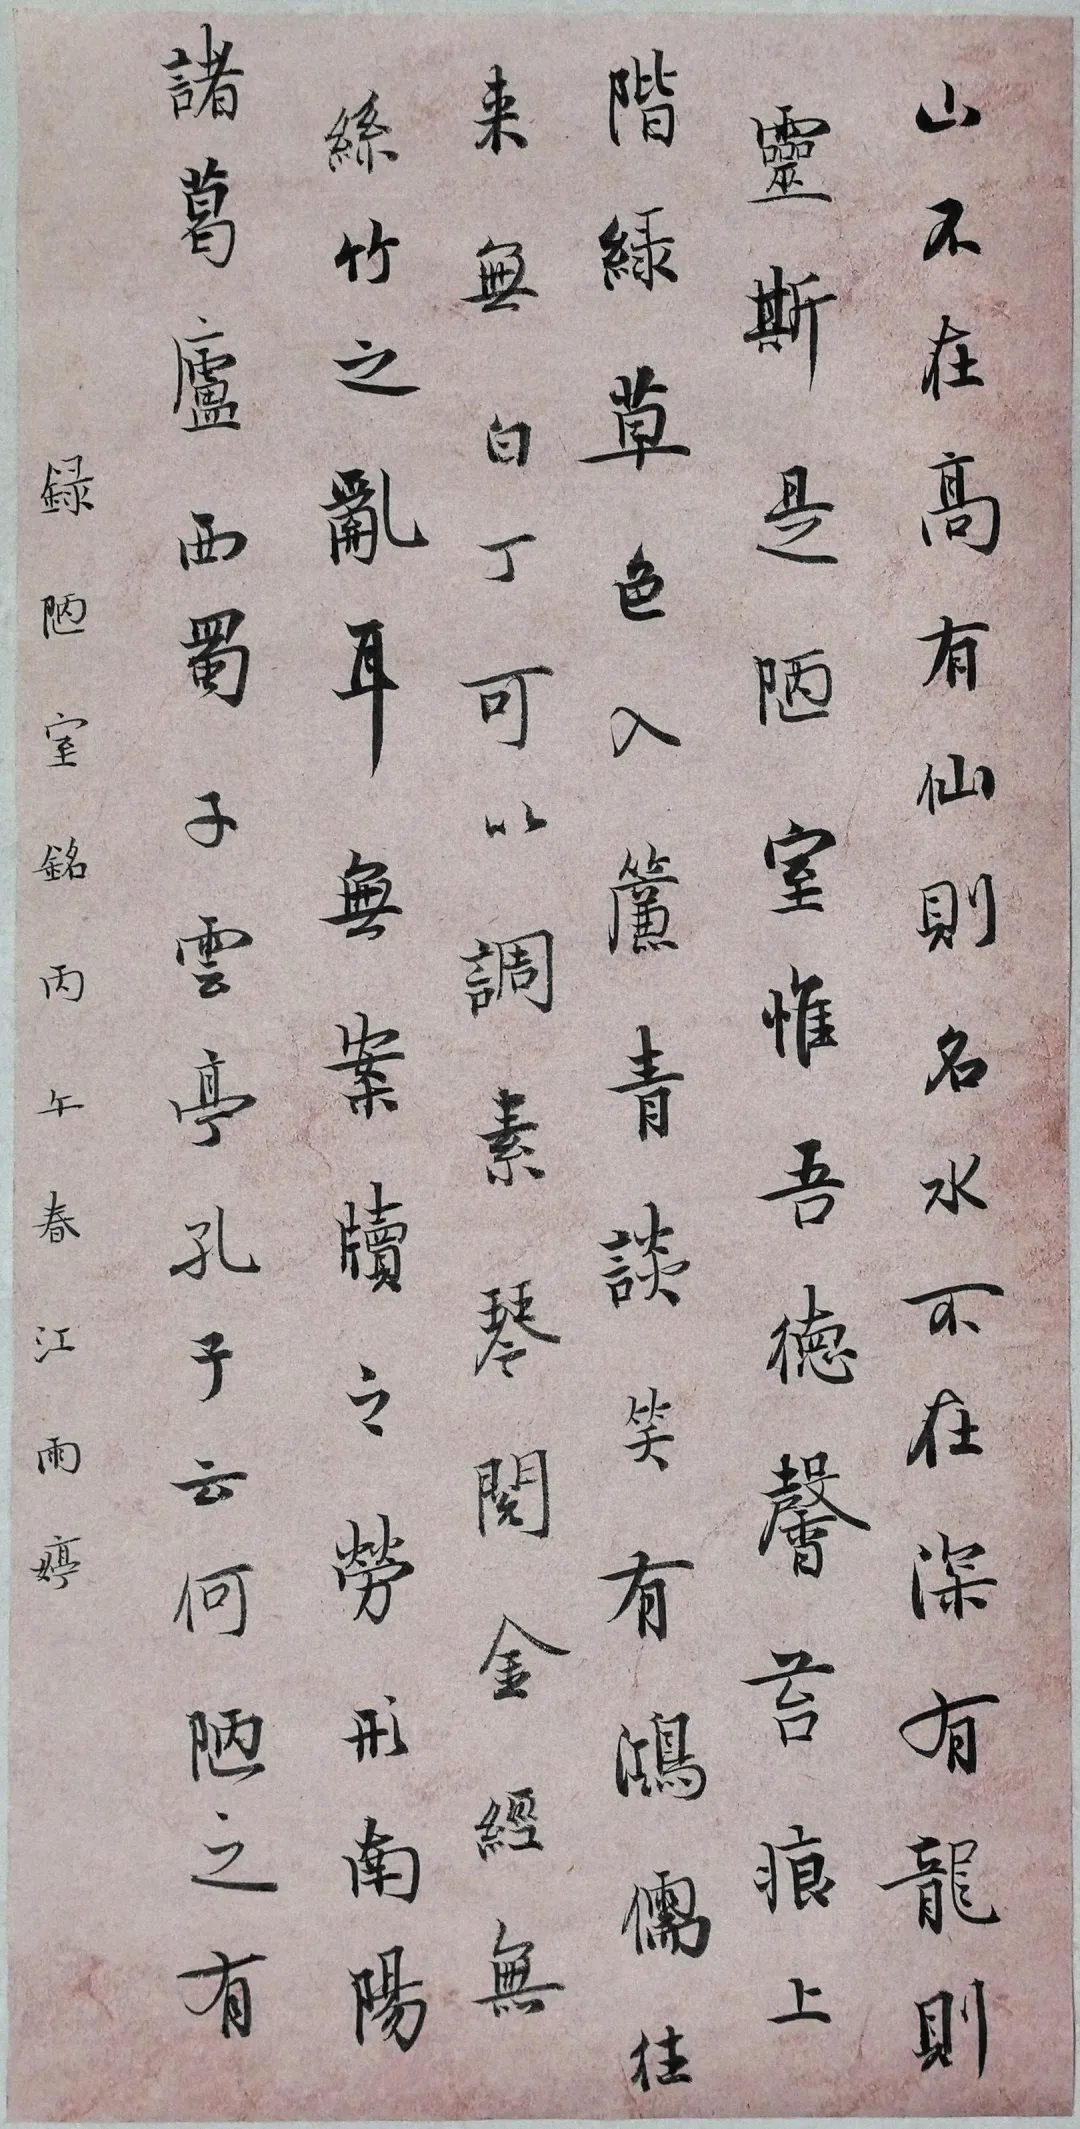 山不在高有仙則名水不在深有龍則
靈斯是陋室惟吾德馨苔痕上
階緑草色入簾青談笑有鴻儒往
来無白丁可以調素琴閱金經無
絲竹之亂耳無案牘之勞形南陽
諸葛廬西蜀子雲亭孔子云何陋之有
録陋室銘丙午春江雨婷